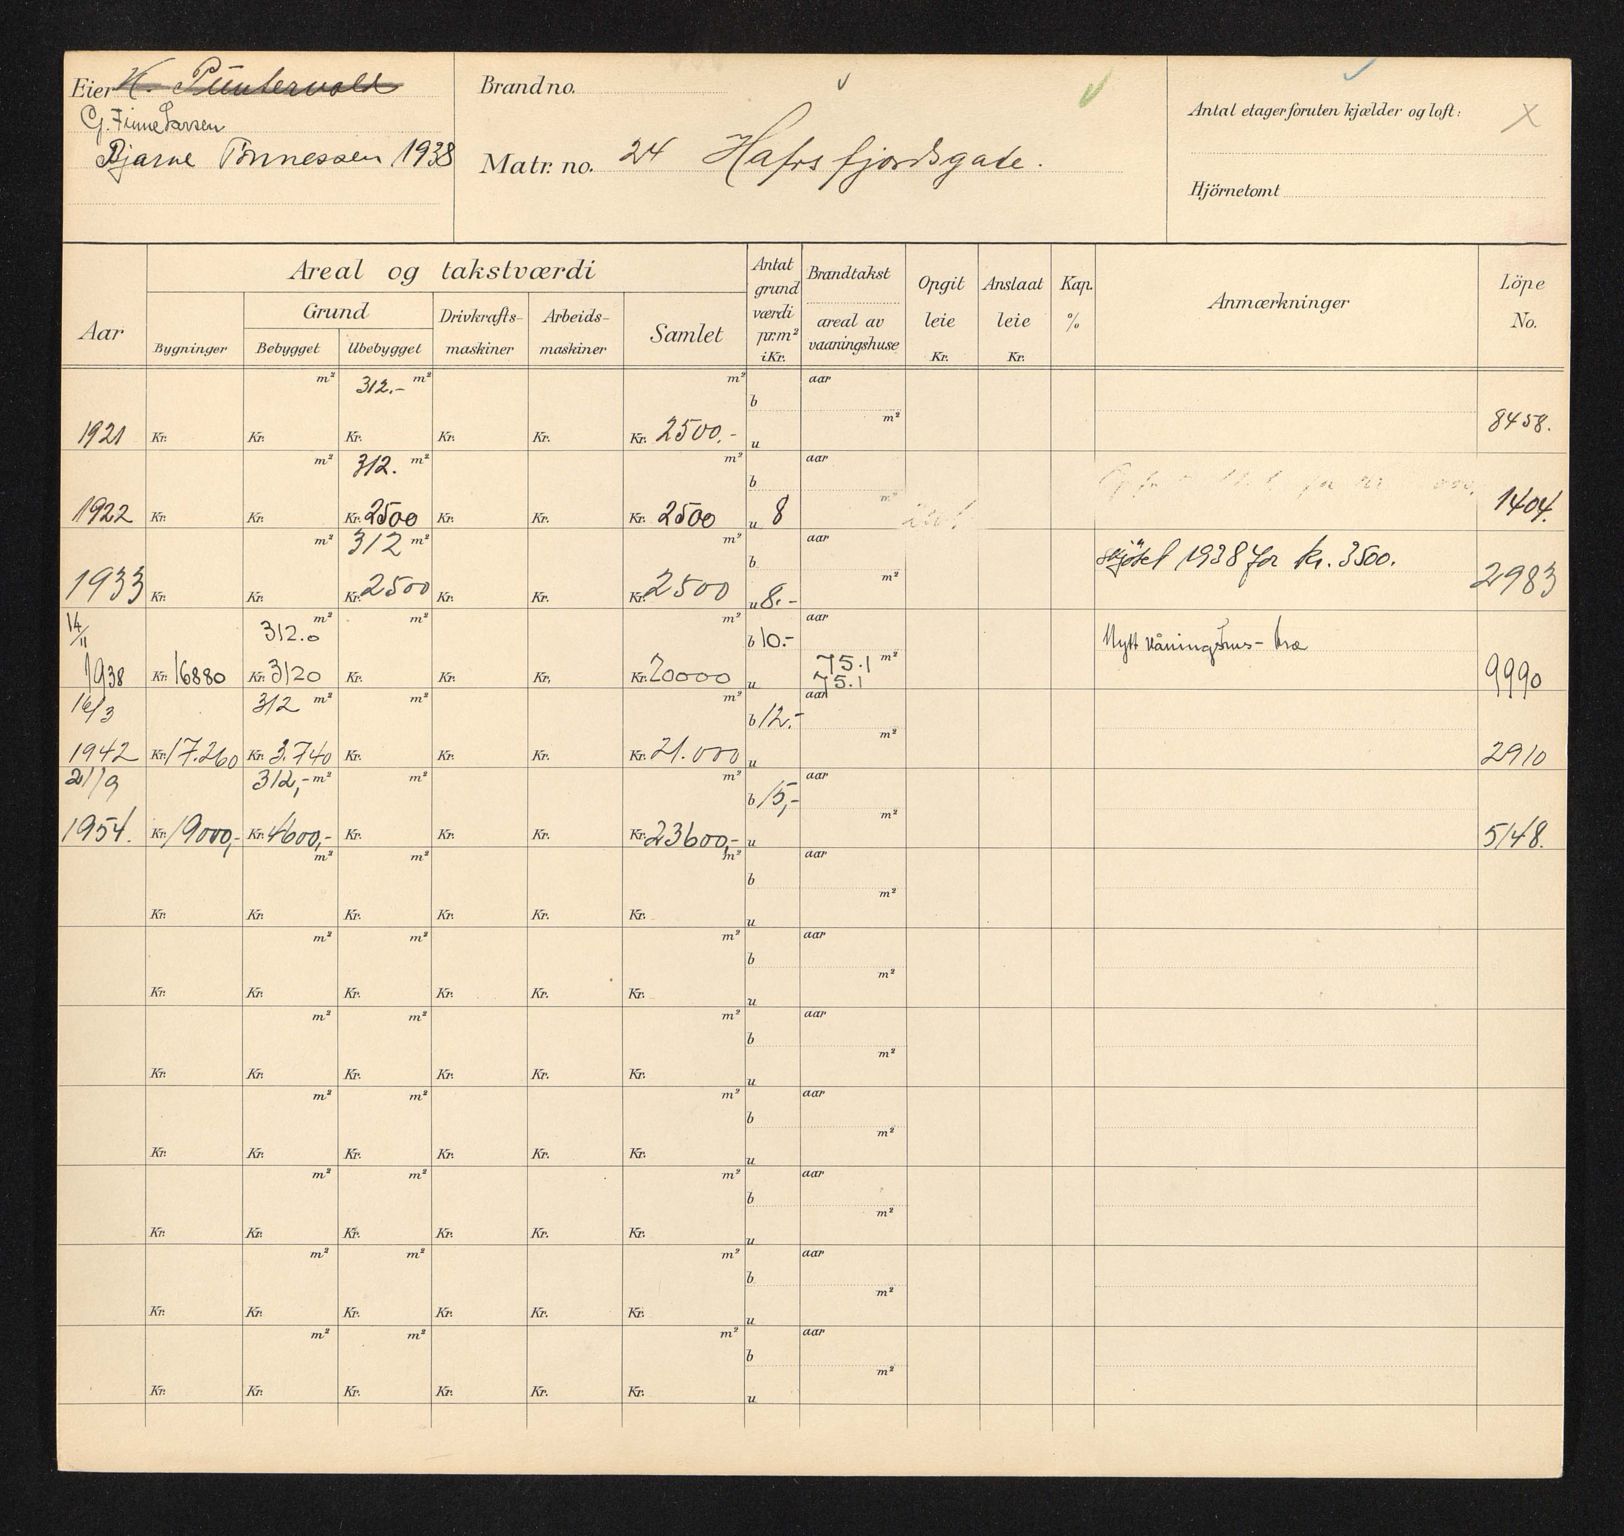 Eier H. Puntervold
G. Finne Larsen
Bjarne Tönnessen 1938
Brand no.
Matr. no. 24 Hafrsfjordsgade.
Antal etager foruten kjælder og loft:
Hjörnetomt
Aar
Areal og takstværdi
Grund
Bygninger
Bebygget
Ubebygget
Drivkrafts-
maskiner
Arbeids-
maskiner
Samlet
Antat
grund
værdi
pr.m²
i Kr.
Brandtakst
areal av
vaaningshuse
Opgit
leie
Kr.
Anslaat
leie
Kr.
Kap.
%
Anmærkninger
Löpe
No.
m² 312.- m² m² aar
b
m²
1921 Kr. Kr. Kr. Kr. Kr. Kr. 2500.- u 8458.
m² 312. m² m² aar
b
m²
1922 Kr. Kr. Kr. 2500 Kr. Kr. Kr. 2500 u 8 1404.
m² 312 m² m² aar
b skjötet 1938 for kr. 3500.
m²
1933 Kr. Kr. Kr. 2500 Kr. Kr. Kr. 2500 u 8.- 2983
14/11 312.0 m² m² m² aar
b 10.- Nytt våningshus - træ
75.1 m²
1938 Kr. 16880 Kr. 3120 Kr. Kr. Kr. Kr. 20000 u 75.1 9990
16/3 312 m² m² m² aar
b 12.-
m²
1942 Kr. 17.260 Kr. 3.740 Kr. Kr. Kr. Kr. 21.000 u 2910
21/9 312,- m² m² m² aar
b 15,-
m²
1954. Kr. 19000,- Kr. 4600,- Kr. Kr. Kr. Kr. 23600,- u 5148.
m² m² m² aar
b
m²
Kr. Kr. Kr. Kr. Kr. Kr. u
m² m² m² aar
b
m²
Kr. Kr. Kr. Kr. Kr. Kr. u
m² m² m² aar
b
m²
Kr. Kr. Kr. Kr. Kr. Kr. u
m² m² m² aar
b
m²
Kr. Kr. Kr. Kr. Kr. Kr. u
m² m² m² aar
b
m²
Kr. Kr. Kr. Kr. Kr. Kr. u
m² m² m² aar
b
m²
Kr. Kr. Kr. Kr. Kr. Kr. u
m² m² m² aar
b
m²
Kr. Kr. Kr. Kr. Kr. Kr. u